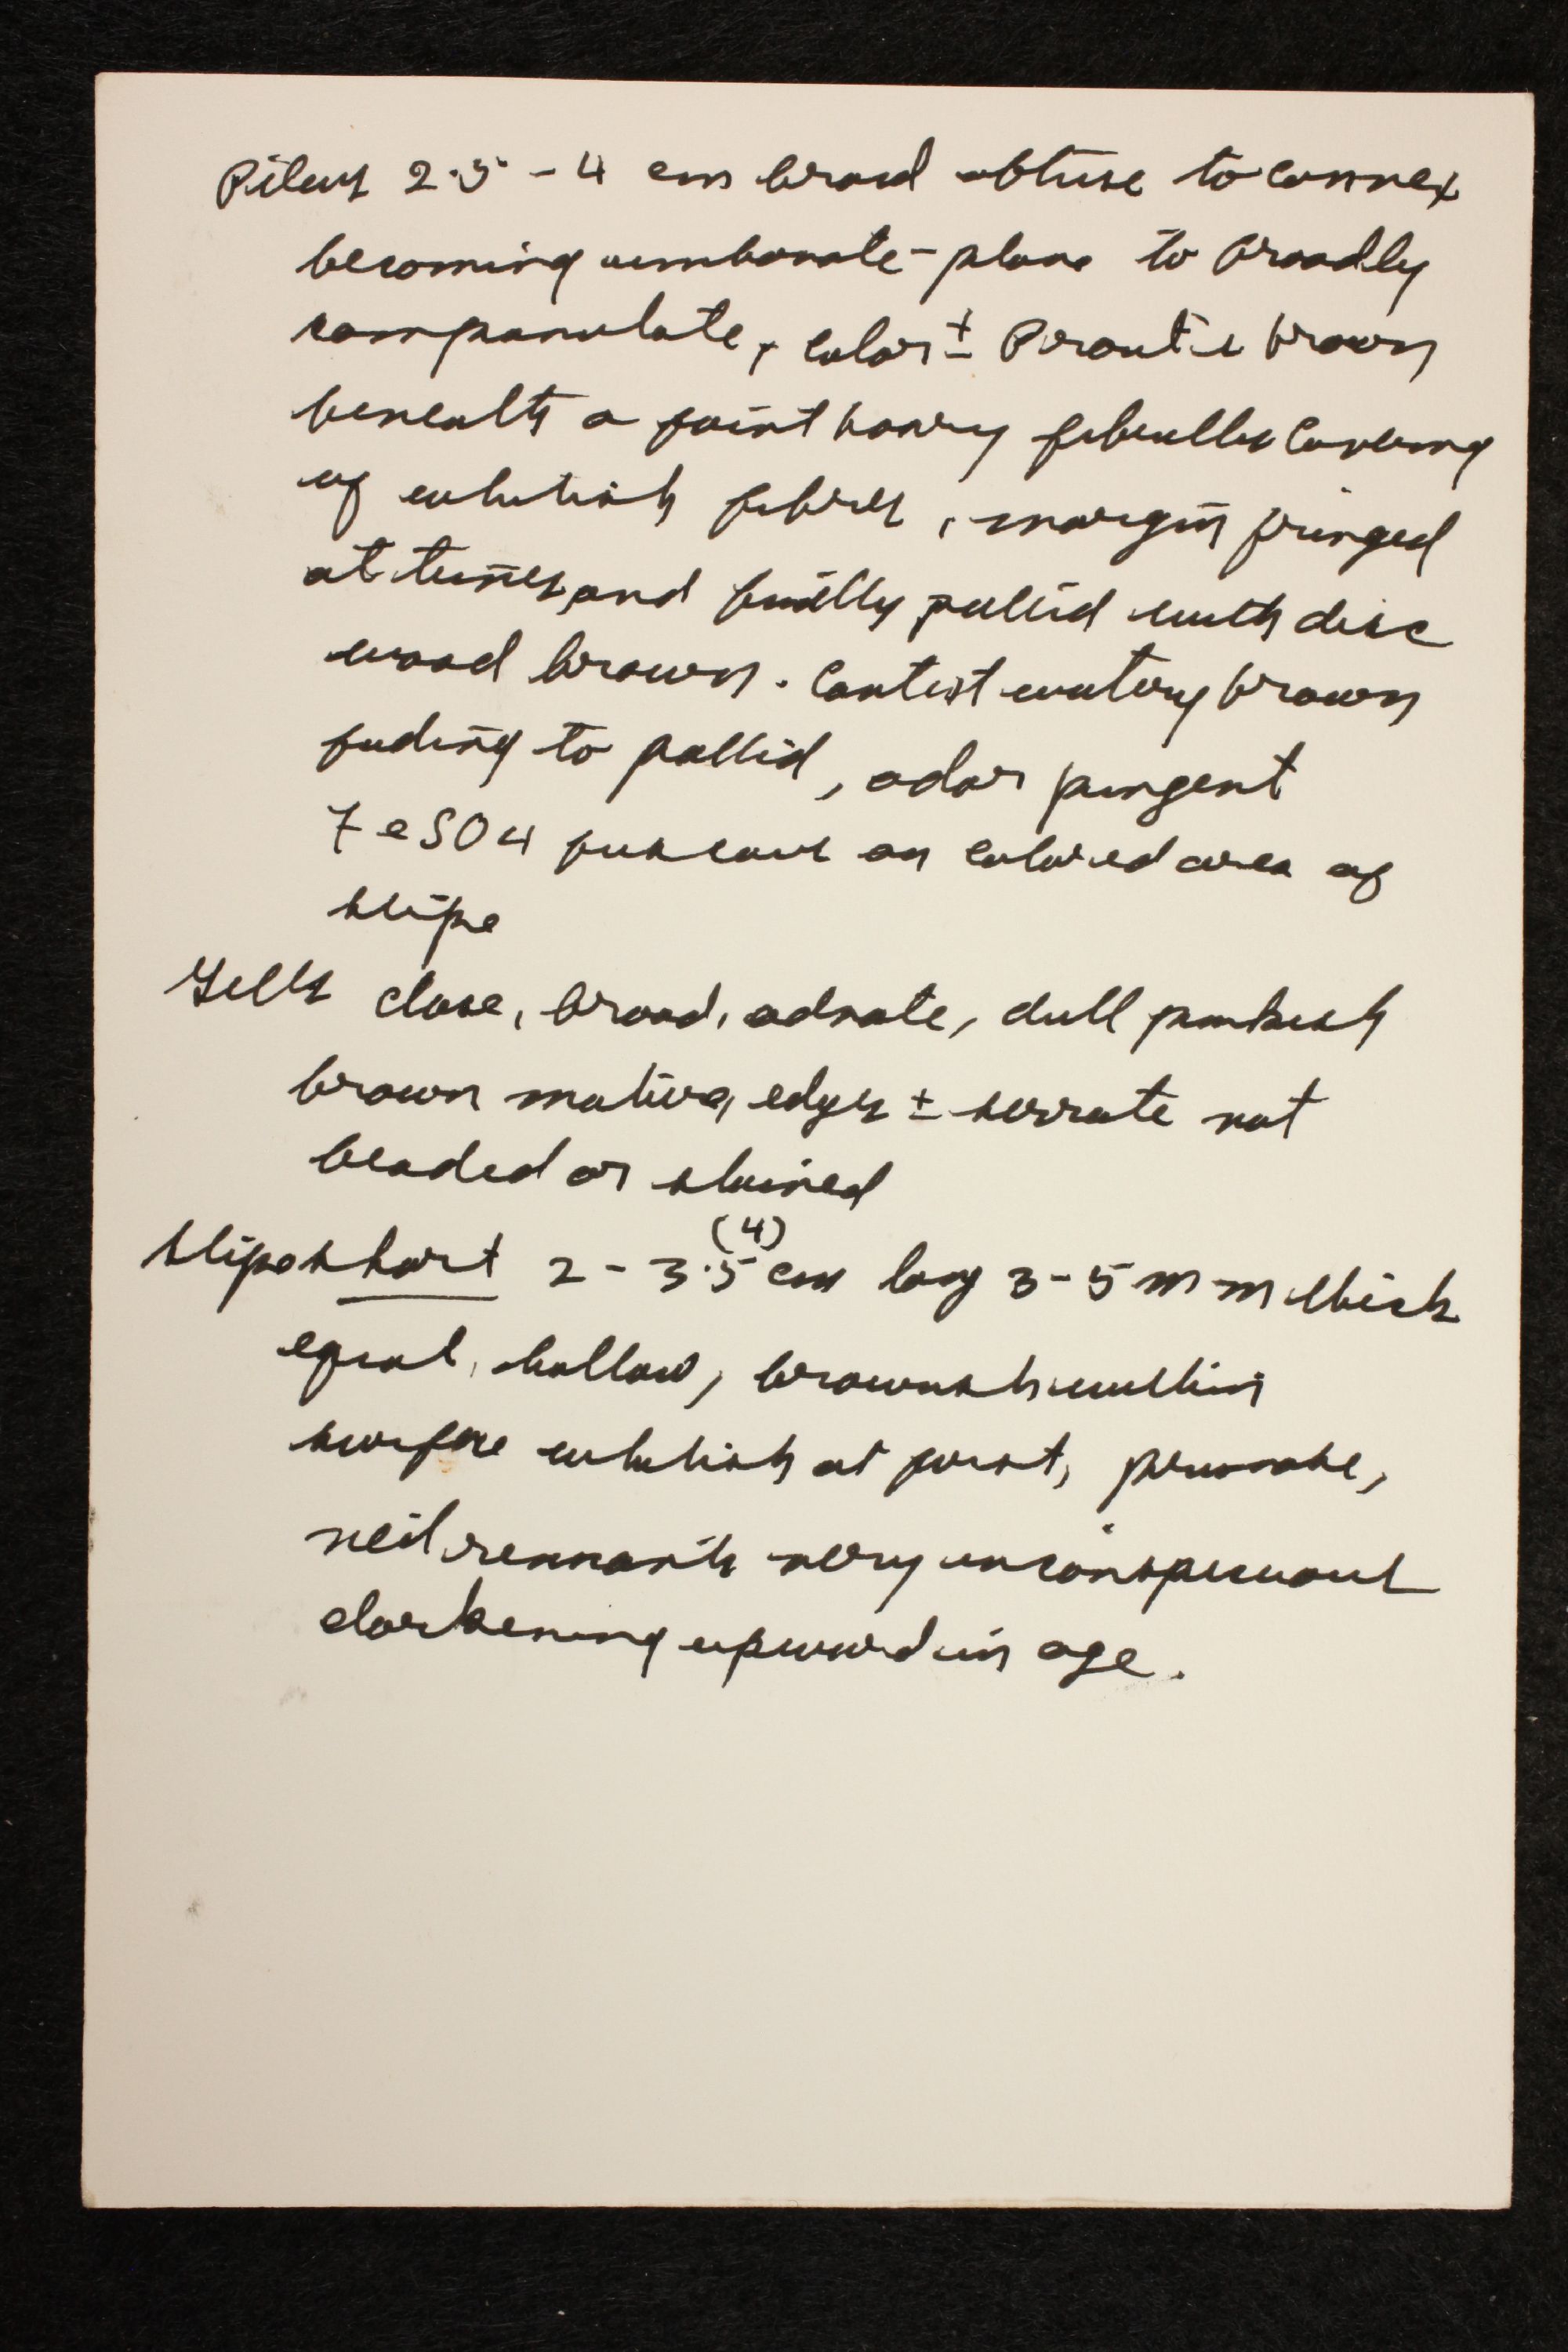 Pileus 2.5 - 4 cm broad obtuse to convex
becoming umbonate-plane to broadly
campanulate, color ± Prouts brown
beneath a faint hoary fibrillose covering
of whitish fibrils, margin fringed
at times and finally pallid with disc
wood brown. Context watery brown
fading to pallid, odor pungent
FeSO4 fuscous on colored area of
stipe
Gills close, broad, adnate, dull pinkish
brown mature, edges ± serrate not
beaded or stained
Stipe short 2 - 3.5 (4) cm long 3-5 mm thick
equal, hollow, brownish within
surface whitish at first, pruinose,
veil remnants very inconspicuous
darkening upward in age.